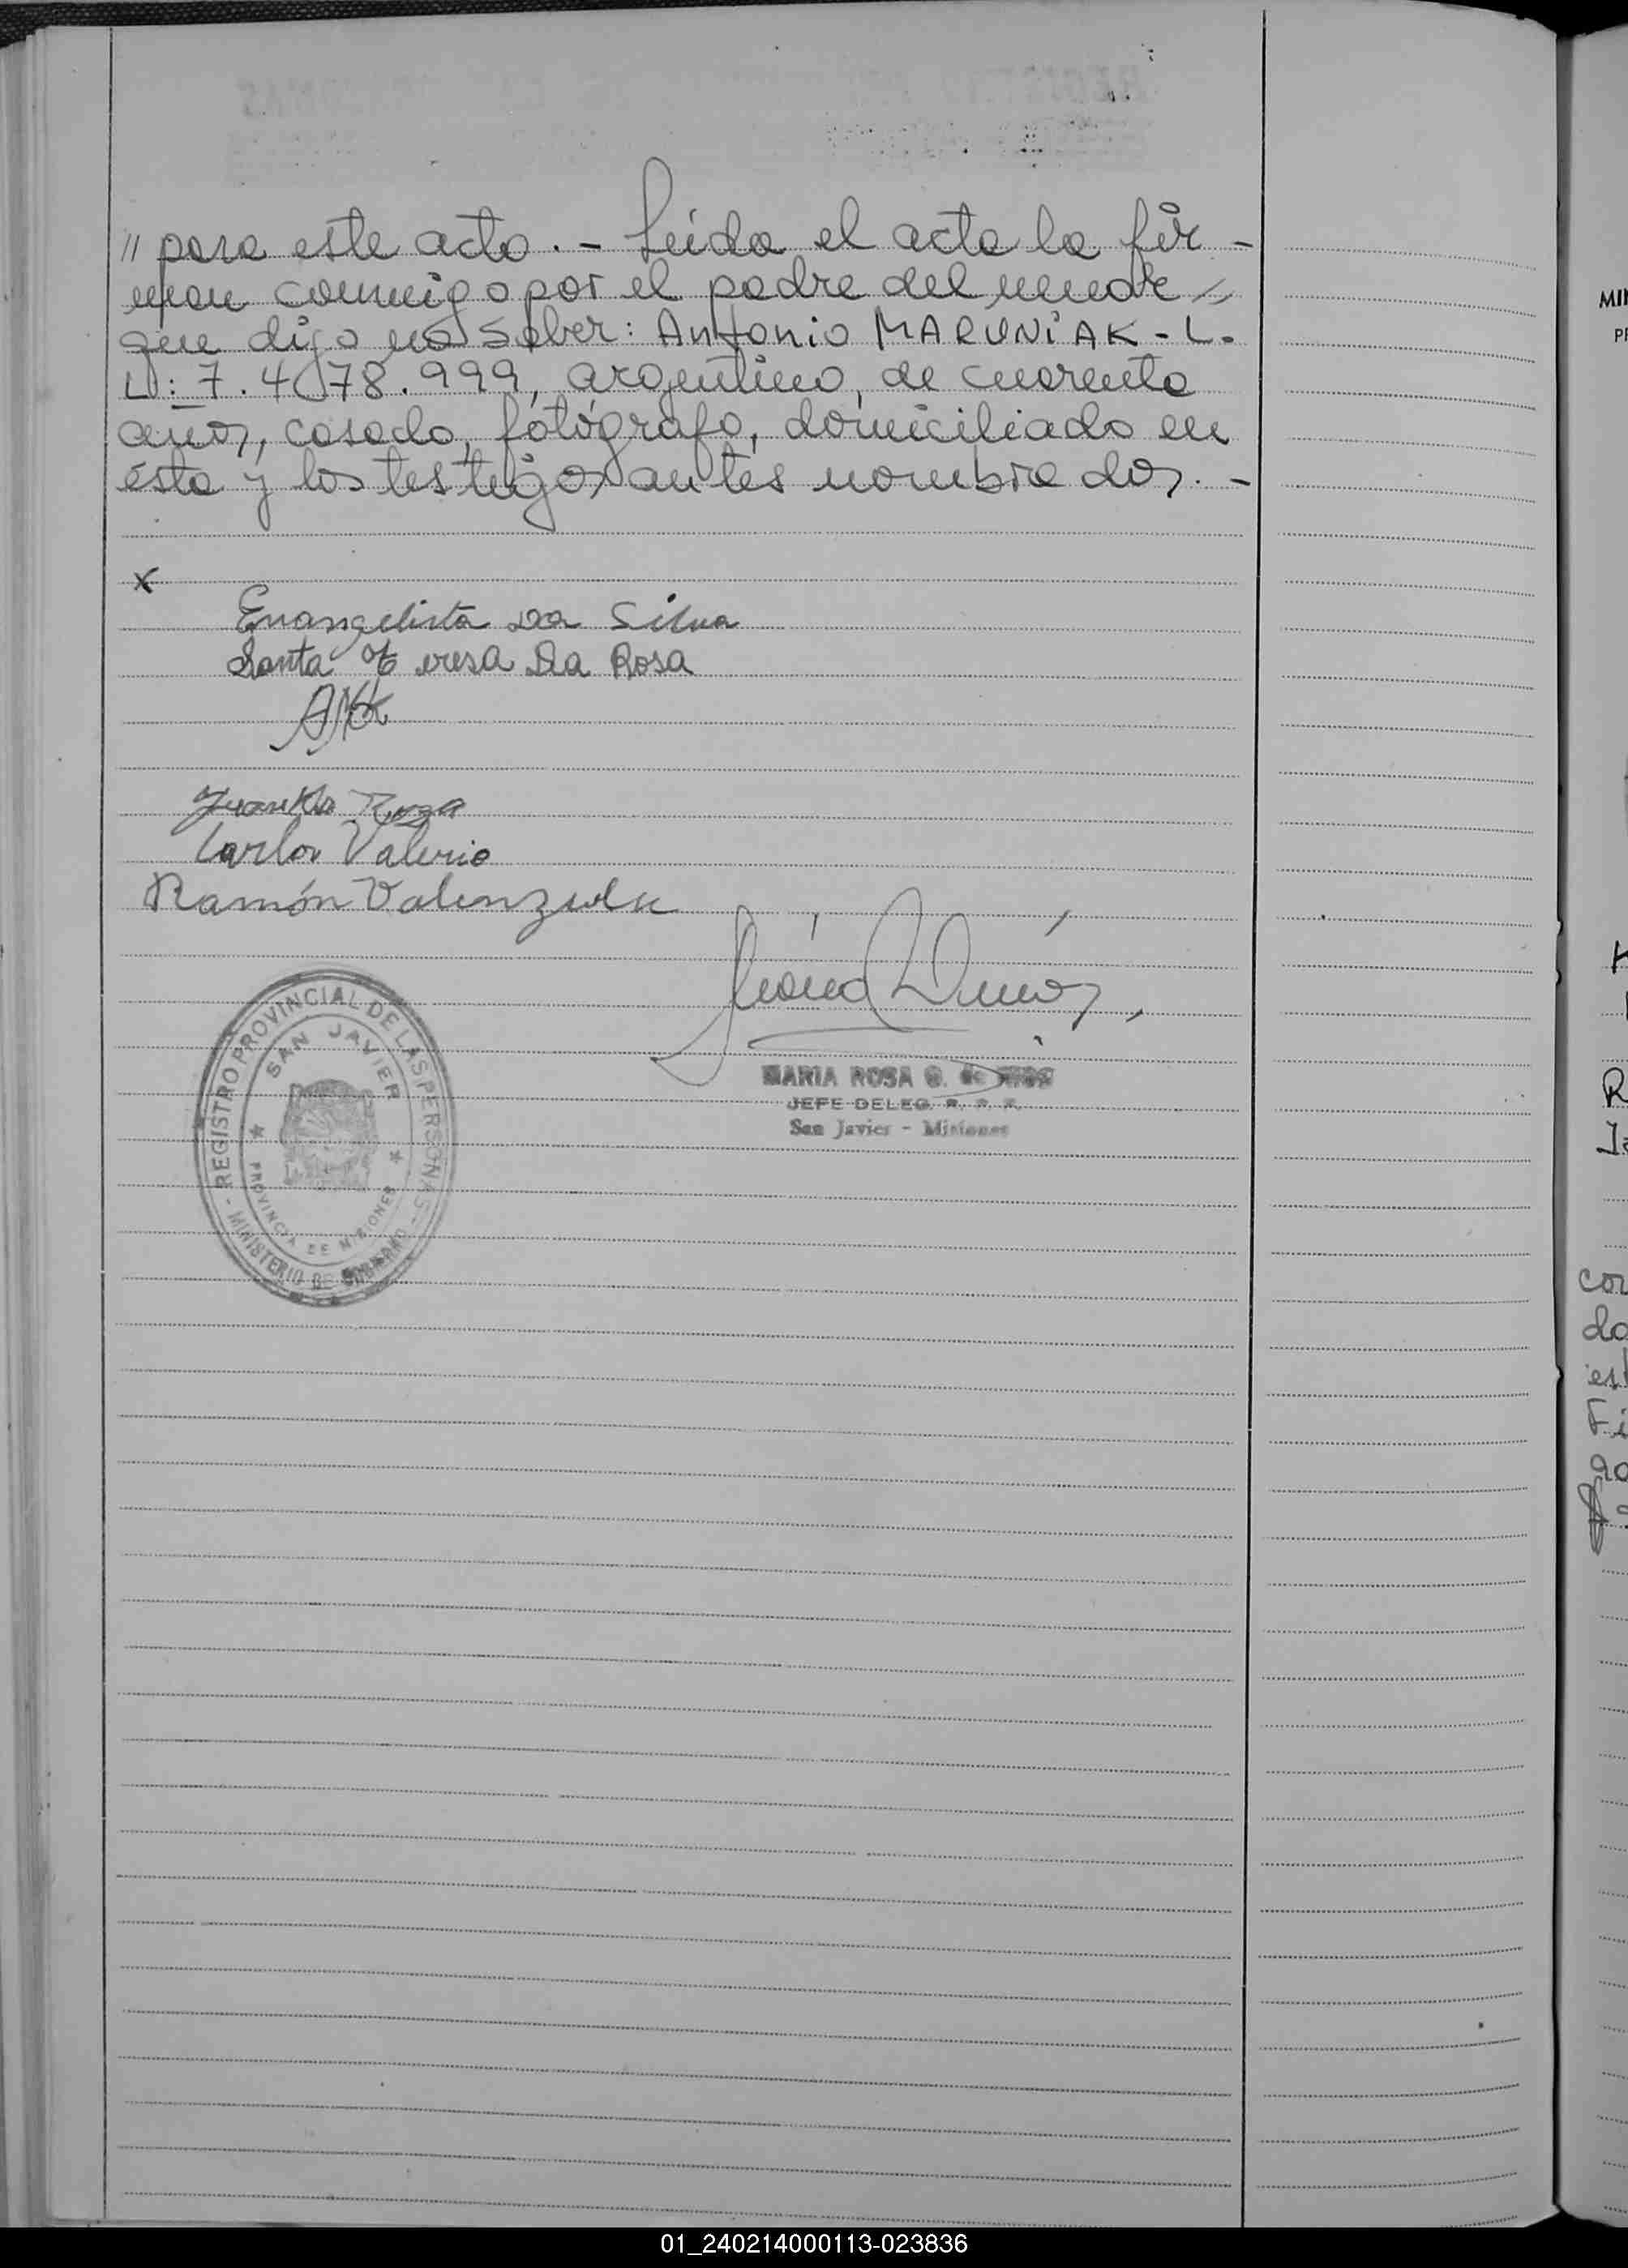 // para este acto. - Leída el acta la fir -
man conmigo por el padre del menor =
que dijo no saber: Antonio MARUNIAK - L.
L: 7.478.999, argentino, de cuarenta
años, casado, fotógrafo, domiciliado en
ésta y los testigos antes nombrados. -
x
Evangelista Da Silva
Santa Teresa Da Rosa
Carlos Valerio
Ramón Valenzuela
REGISTRO PROVINCIAL DE LAS PERSONAS
SAN JAVIER
PROVINCIA DE MISIONES
- MINISTERIO DE GOBIERNO -
MARIA ROSA
JEFE DELEG. R. P. P.
San Javier - Misiones
MIN
P
H
R
cor
do
est
Fi
01_240214000113-023836